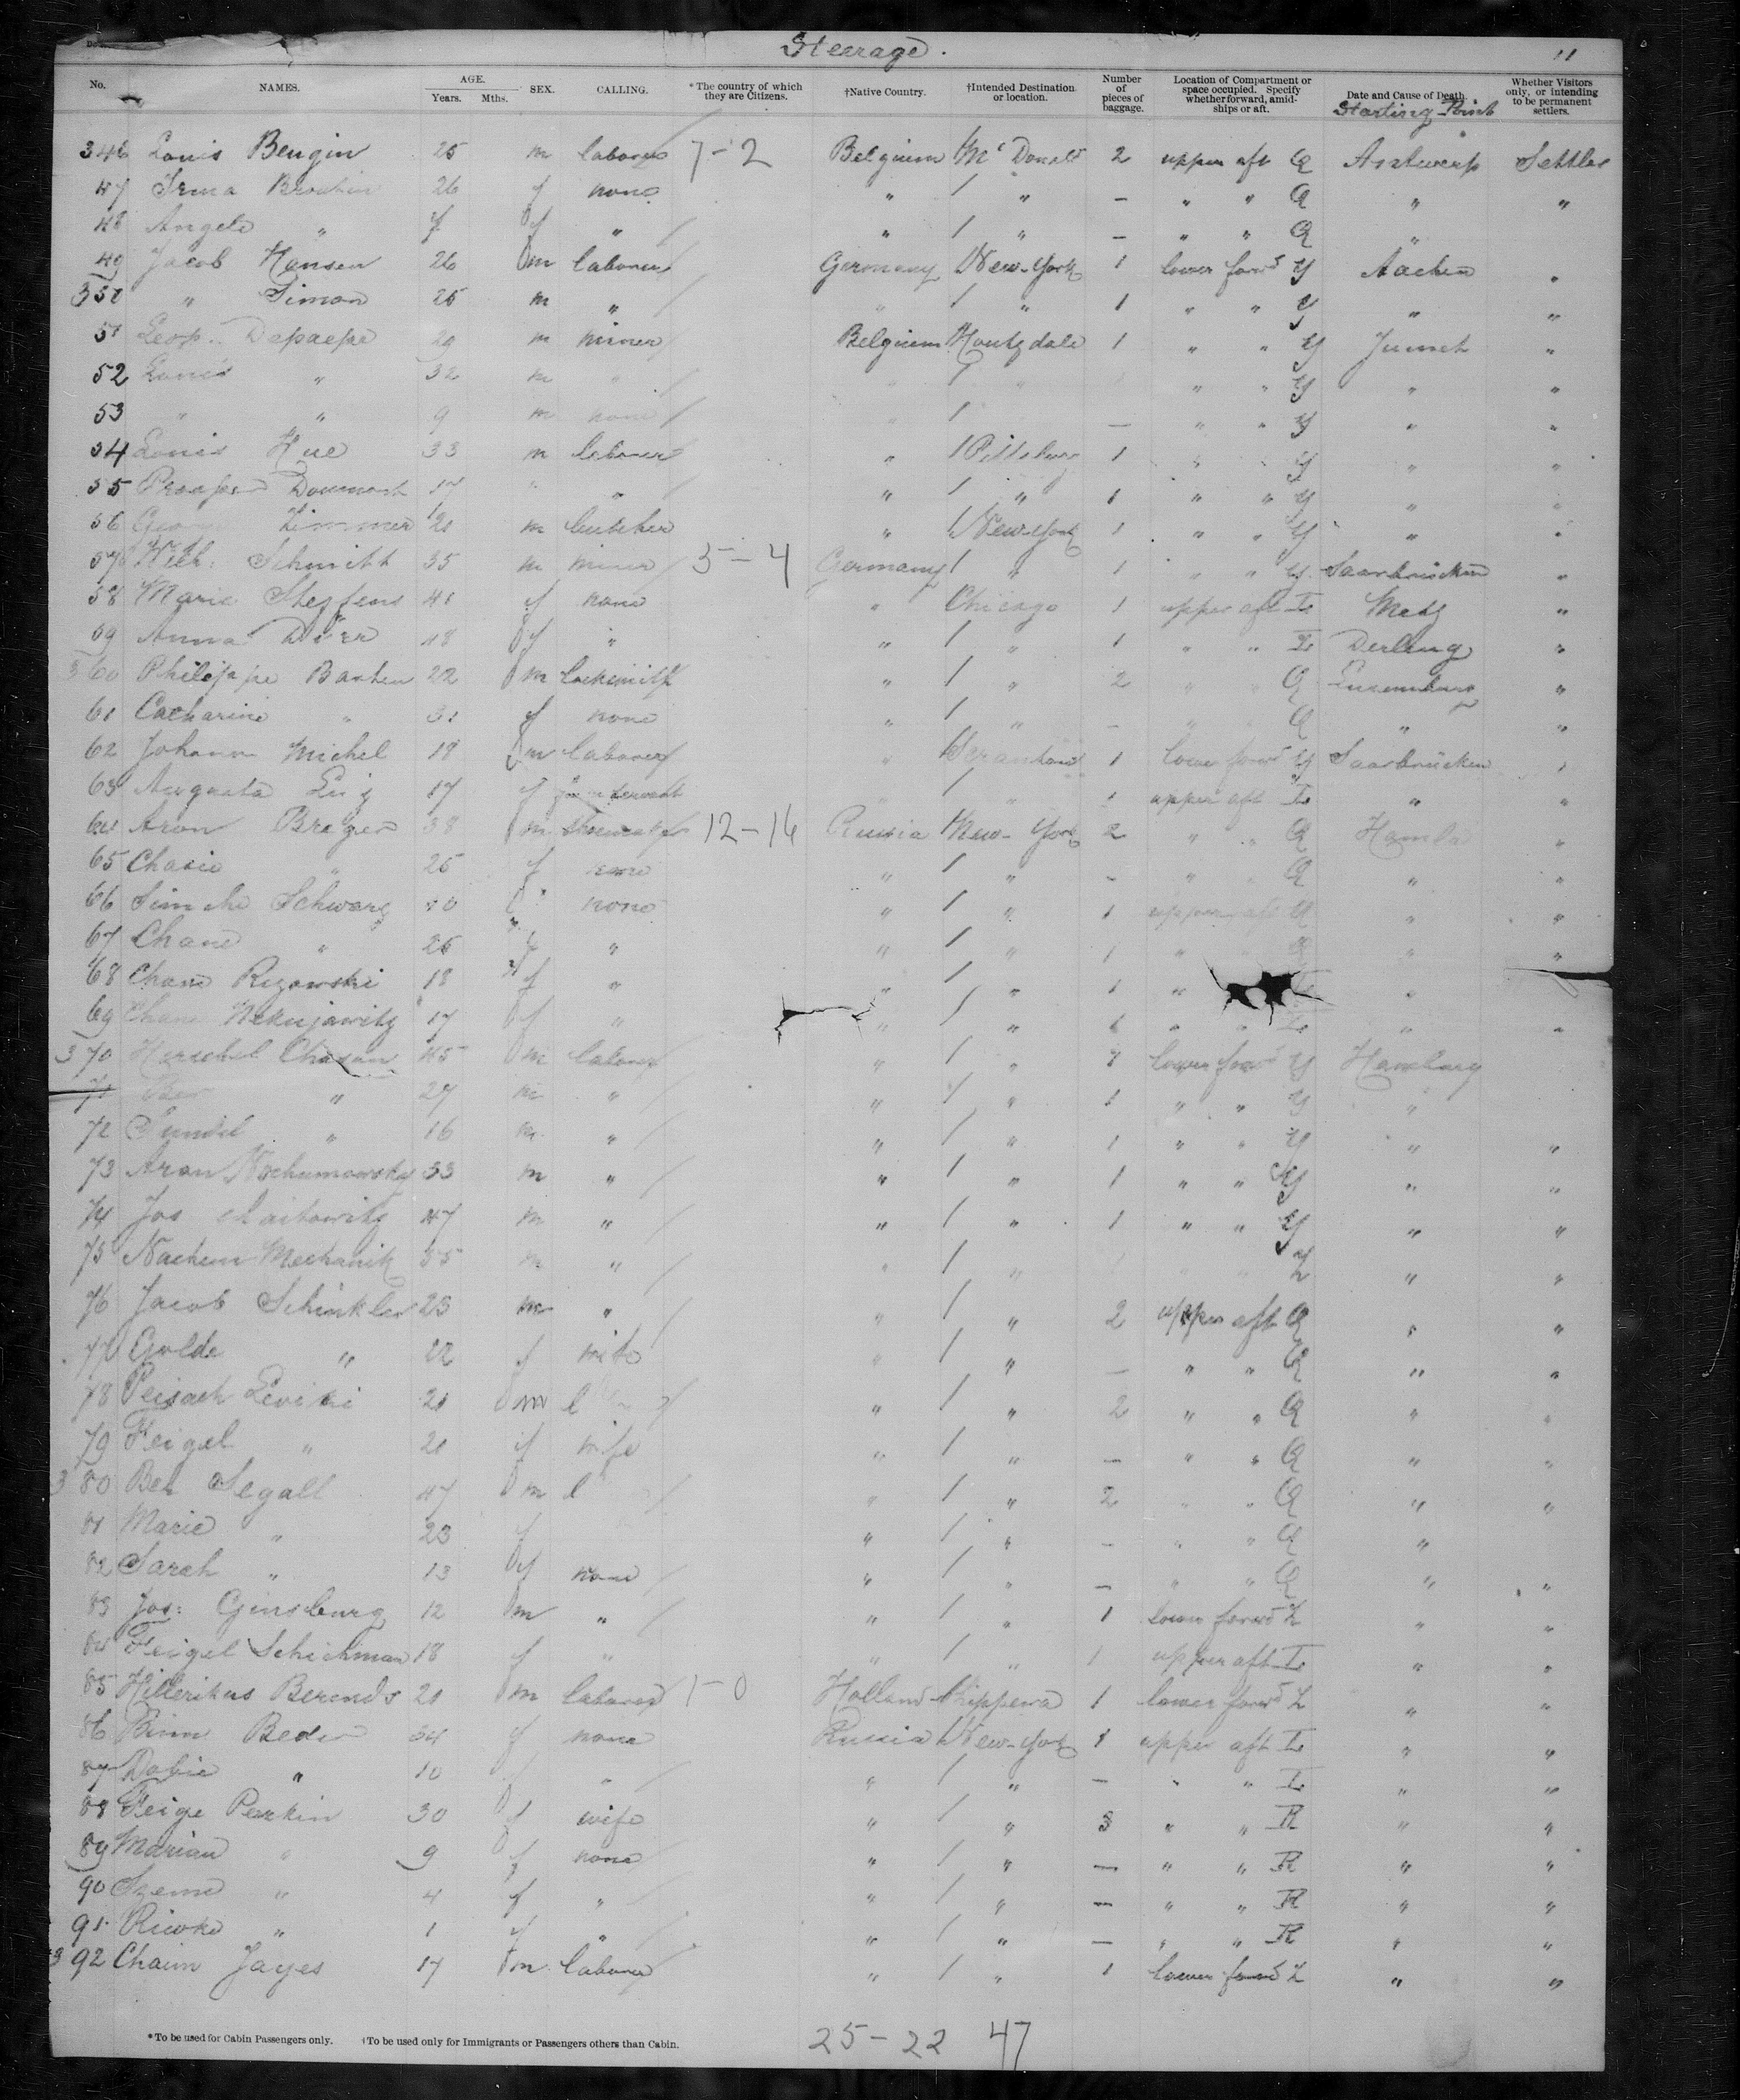 Steerage. 11
No. NAMES. AGE. Years. Mths. SEX. CALLING. *The country of which they are Citizens. †Native Country. †Intended Destination or location. Number of pieces of baggage. Location of Compartment or space occupied. Specify whether forward, amidships or aft. Date and Cause of Death. Starting Point Whether Visitors only, or intending to be permanent settlers.
346 Louis Bengin 25 m laborer 7-2 Belgium Mc Donald 2 upper aft Q Antwerp Settler
47 Irma 26 f none " / " — " " Q " "
48 Angele " f " / " / " — " " Q "
49 Jacob Hansen 26 m laborer Germany New-York 1 lower forwd Y Aachen "
350 " Simon 25 m " / " / " 1 " " Y " "
51 Leop. Depaepe 29 m miner Belgium Houtzdale 1 " " Y Jumet "
52 Louis " 32 m " / " / " " " Y " "
53 " " 9 m none / " / — " " Y " "
54 Louis Hue 33 m laborer " Pittsburg 1 " " Y " "
55 Prosper Doumont 17 " " / " / " 1 " " Y " "
56 Zimmer m butcher " New-York 1 " " Y " "
57 Schmitt 35 m miner 5-4 Germany / " 1 " " Y Saarbrücken "
58 Marie Steffens 41 f none " Chicago 1 upper aft Metz "
59 Anna 48 f " " / " 1 " " "
360 Philippe Basten 22 m locksmith " / " 2 " " Q Luxemburg "
61 Catharine " 31 f none " / " — " " Q " "
62 Johann Michel 18 m laborer " Scranton 1 lower forwd Y Saarbrücken
63 Augusta 17 f servant " / " 1 upper aft " "
64 Aron Brager 38 m 12-16 Russia New-York 2 " " Q "
65 Chasie " 25 f none " / " - " " Q " "
66 Simche Schwarz none " / " 1 upper aft Q " "
67 Chane " 26 " " / " 1 " " Q " "
68 Chane Rizowski 18 f " " / " 1 " "
69 Chane 17 f " " / " " " " "
370 Herschel Chasan 45 m laborer " / " lower forwd Y Hamburg
71 " 27 m " / " / " 1 " " Y "
72 " 16 m " / " / " 1 " " Y " "
73 Aron Nochumowsky 33 m " / " / " 1 " " Y " "
74 Jos 47 m " / " / " 1 " " Y " "
75 Nachum Mechanik 55 m " / " / " " " Z " "
76 Jacob Schinkler 23 m " / " / " 2 upper aft Q " "
77 Golde " 22 f wife " / " — " " Q " "
78 Peisach 21 m l / " / " 2 " " Q " "
79 Feigel " 21 f wife " / " — " " Q " "
380 Ber Segall 47 m l / " / " 2 " " Q " "
81 Marie " 23 f " / " — " " Q "
82 Sarah " 13 f none / " / " — " " Q " "
83 Jos: Ginsburg 12 m " / " / " 1 lower forwd Z " "
84 Feigel Schichman 18 f " " / " 1 upper aft " "
85 Hillerikus Berends 21 m laborer 1-0 Holland Chippewa 1 lower forwd Z " "
86 Beder 34 f none Russia New-York 1 upper aft " "
87 Dobie " 10 " / " / " — " " " "
88 Feige Perkin 30 f wife " / " 3 " " R " "
89 Marian " 9 f none " / " — " " R " "
90 " 4 f " / " / " — " " R " "
91 Riwke " 1 f " / " / " — " " R " "
392 Chaim Jayes 17 m laborer " / " 1 lower forwd Z " "
*To be used for Cabin Passengers only. †To be used only for Immigrants or Passengers others than Cabin. 25-22 47